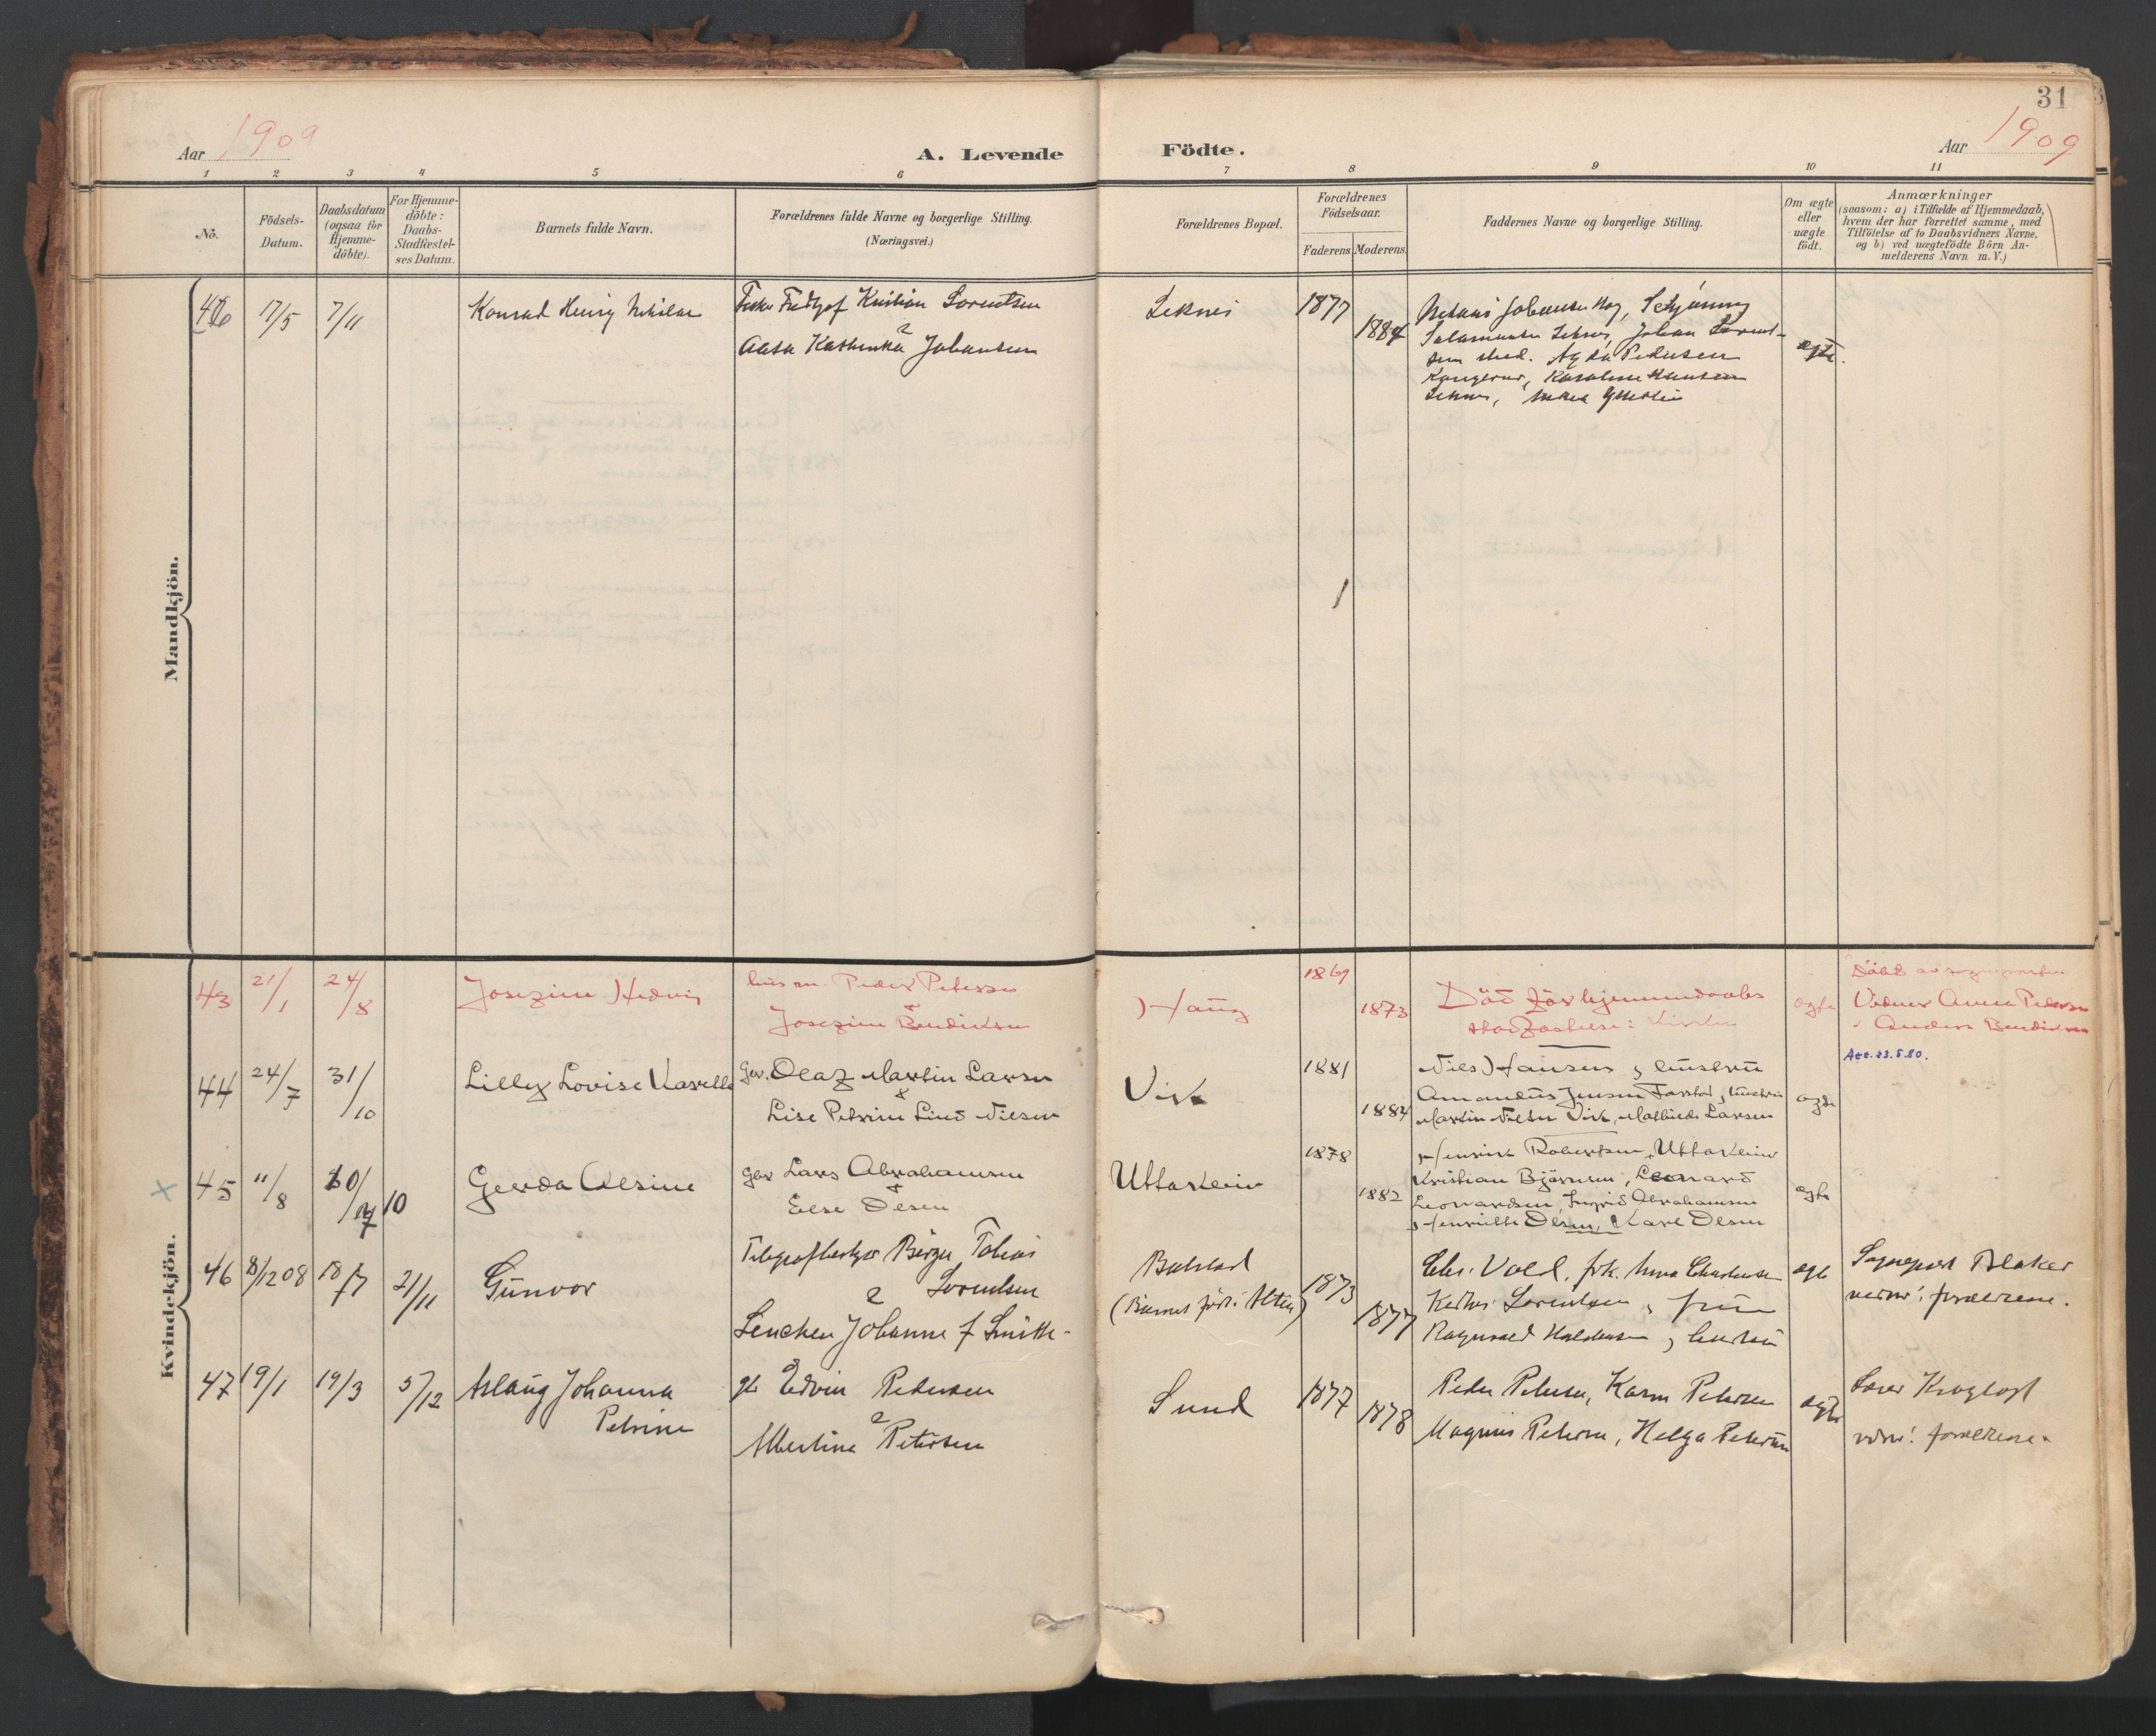 31
Aar 1909
A. Levende
Födte.
Aar 1909
1 2 3 4 5 6 7 8 9 10 11
Nö.
Födsels-
Datum.
Daabsdatum
(ogsaa för
Hjemme-
döbte).
For Hjemme-
döbte:
Daabs-
Stadfæstel-
ses Datum.
Barnets fulde Navn.
Forældrenes fulde Navne og borgerlige Stilling.
(Næringsvei.)
Forældrenes Bopæl.
Forældrenes
Födselsaar.
Faderens Moderens.
Faddernes Navne og borgerlige Stilling.
Om ægte
eller
uægte
födt.
Anmærkninger
(saasom: a) i Tilfælde af Hjemmedaab,
hvem der har forrettet samme, med
Tilföielse af to Daabsvidners Navne.
og b) ved uægtefödte Börn An-
melderens Navn m.V.)
Mandkjön.
46 17/5 7/11
Konrad Henry
Kristian Lorentsen
Johansen
Leknes
1877
1884
Johan
Pedersen
Karoline Hansen
ægte.
Kvindekjön.
43 21/1 24/8
Josefine Hedvig
Peder Petersen
&
Josefine Bendiksen
Haug
1869
1873
Död för hjemmedaabs
ægte
Vidner Anna
Anders Bendiksen
44 24/7 31/10
Lilly Lovise
gbr. Olaf Martin Larsen
&
Lise Petrine Lind Nilsen
Vik
1881
1884
Nils Hansen & hustru
Amandus Jensen Farstad, hustru
Martin Nilsen Vik, Mathilde Larsen
ægte
Att. 23.5.80.
x 45 11/8 10/10
Gerda Alsine
gbr Lars Abrahamsen
&
Else Olsen
Uttakleiv
1878
1882
Henrik Robertsen, Uttakleiv
Kristian Björnsen, Leonard
Leonardsen, Ingrid Abrahamsen
Henriette Olsen, Karl Olsen
ægte
46 8/12 08 18/7 21/11
Gunvor
Telegrafbestyr Birger Tobias
& Lorentsen
Lenchen Johanne f Smith
Balstad
(Barnet född i Alten)
1873
1877
Chr. Vold, frk. Anna
Lorentsen & frue
Ragnvald & hustru
ægte
Sogneprest Blaker
vidner: forældrene.
47 19/1 19/3 5/12
Aslaug Johanna
Petrine
gbr Edvin Pedersen
&
Albertine Petersen
Sund
1877
1878
Peder Petersen, Karen Petersen
Magnus Petersen, Helga Petersen
ægte
Lærer
vidner: forældrene.